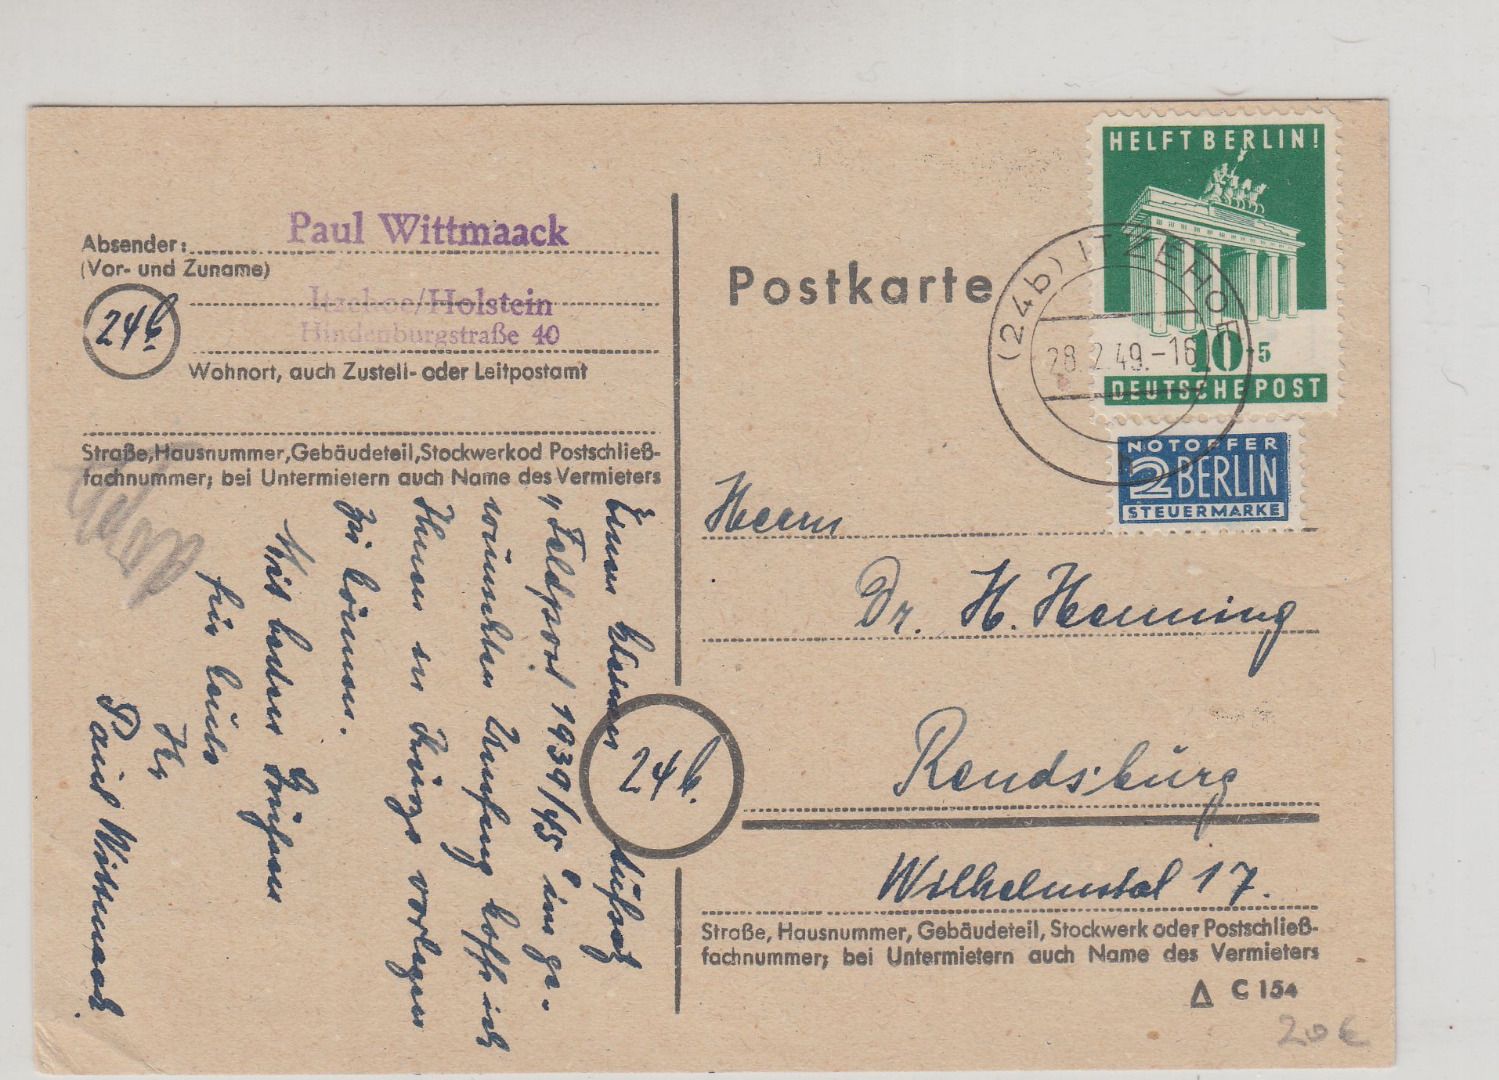 Absender: Paul Wittmaack
(Vor- und Zuname)
24b
Itzehoe/Holstein
Hindenburgstraße 40
Wohnort, auch Zustell- oder Leitpostamt
Straße, Hausnummer, Gebäudeteil, Stockwerk od Postschließ-
fachnummer; bei Untermietern auch Name des Vermieters
Einen kleinen Aufsatz
"Feldpost 1939/45" im ge-
wünschten Umfang hoffe ich
Ihnen in Kürze vorlegen
zu können.
Mit besten Grüßen
für heute
Ihr
Paul Wittmaack.
Postkarte
HELFT BERLIN!
10+5
DEUTSCHE POST
(24b) ITZEHOE
28.2.49.-16
NOTOPFER
2 BERLIN
STEUERMARKE
Herrn
Dr. H. Henning
24b.
Rendsburg
Wilhelmstal 17.
Straße, Hausnummer, Gebäudeteil, Stockwerk oder Postschließ-
fachnummer; bei Untermietern auch Name des Vermieters
C 154
20 €